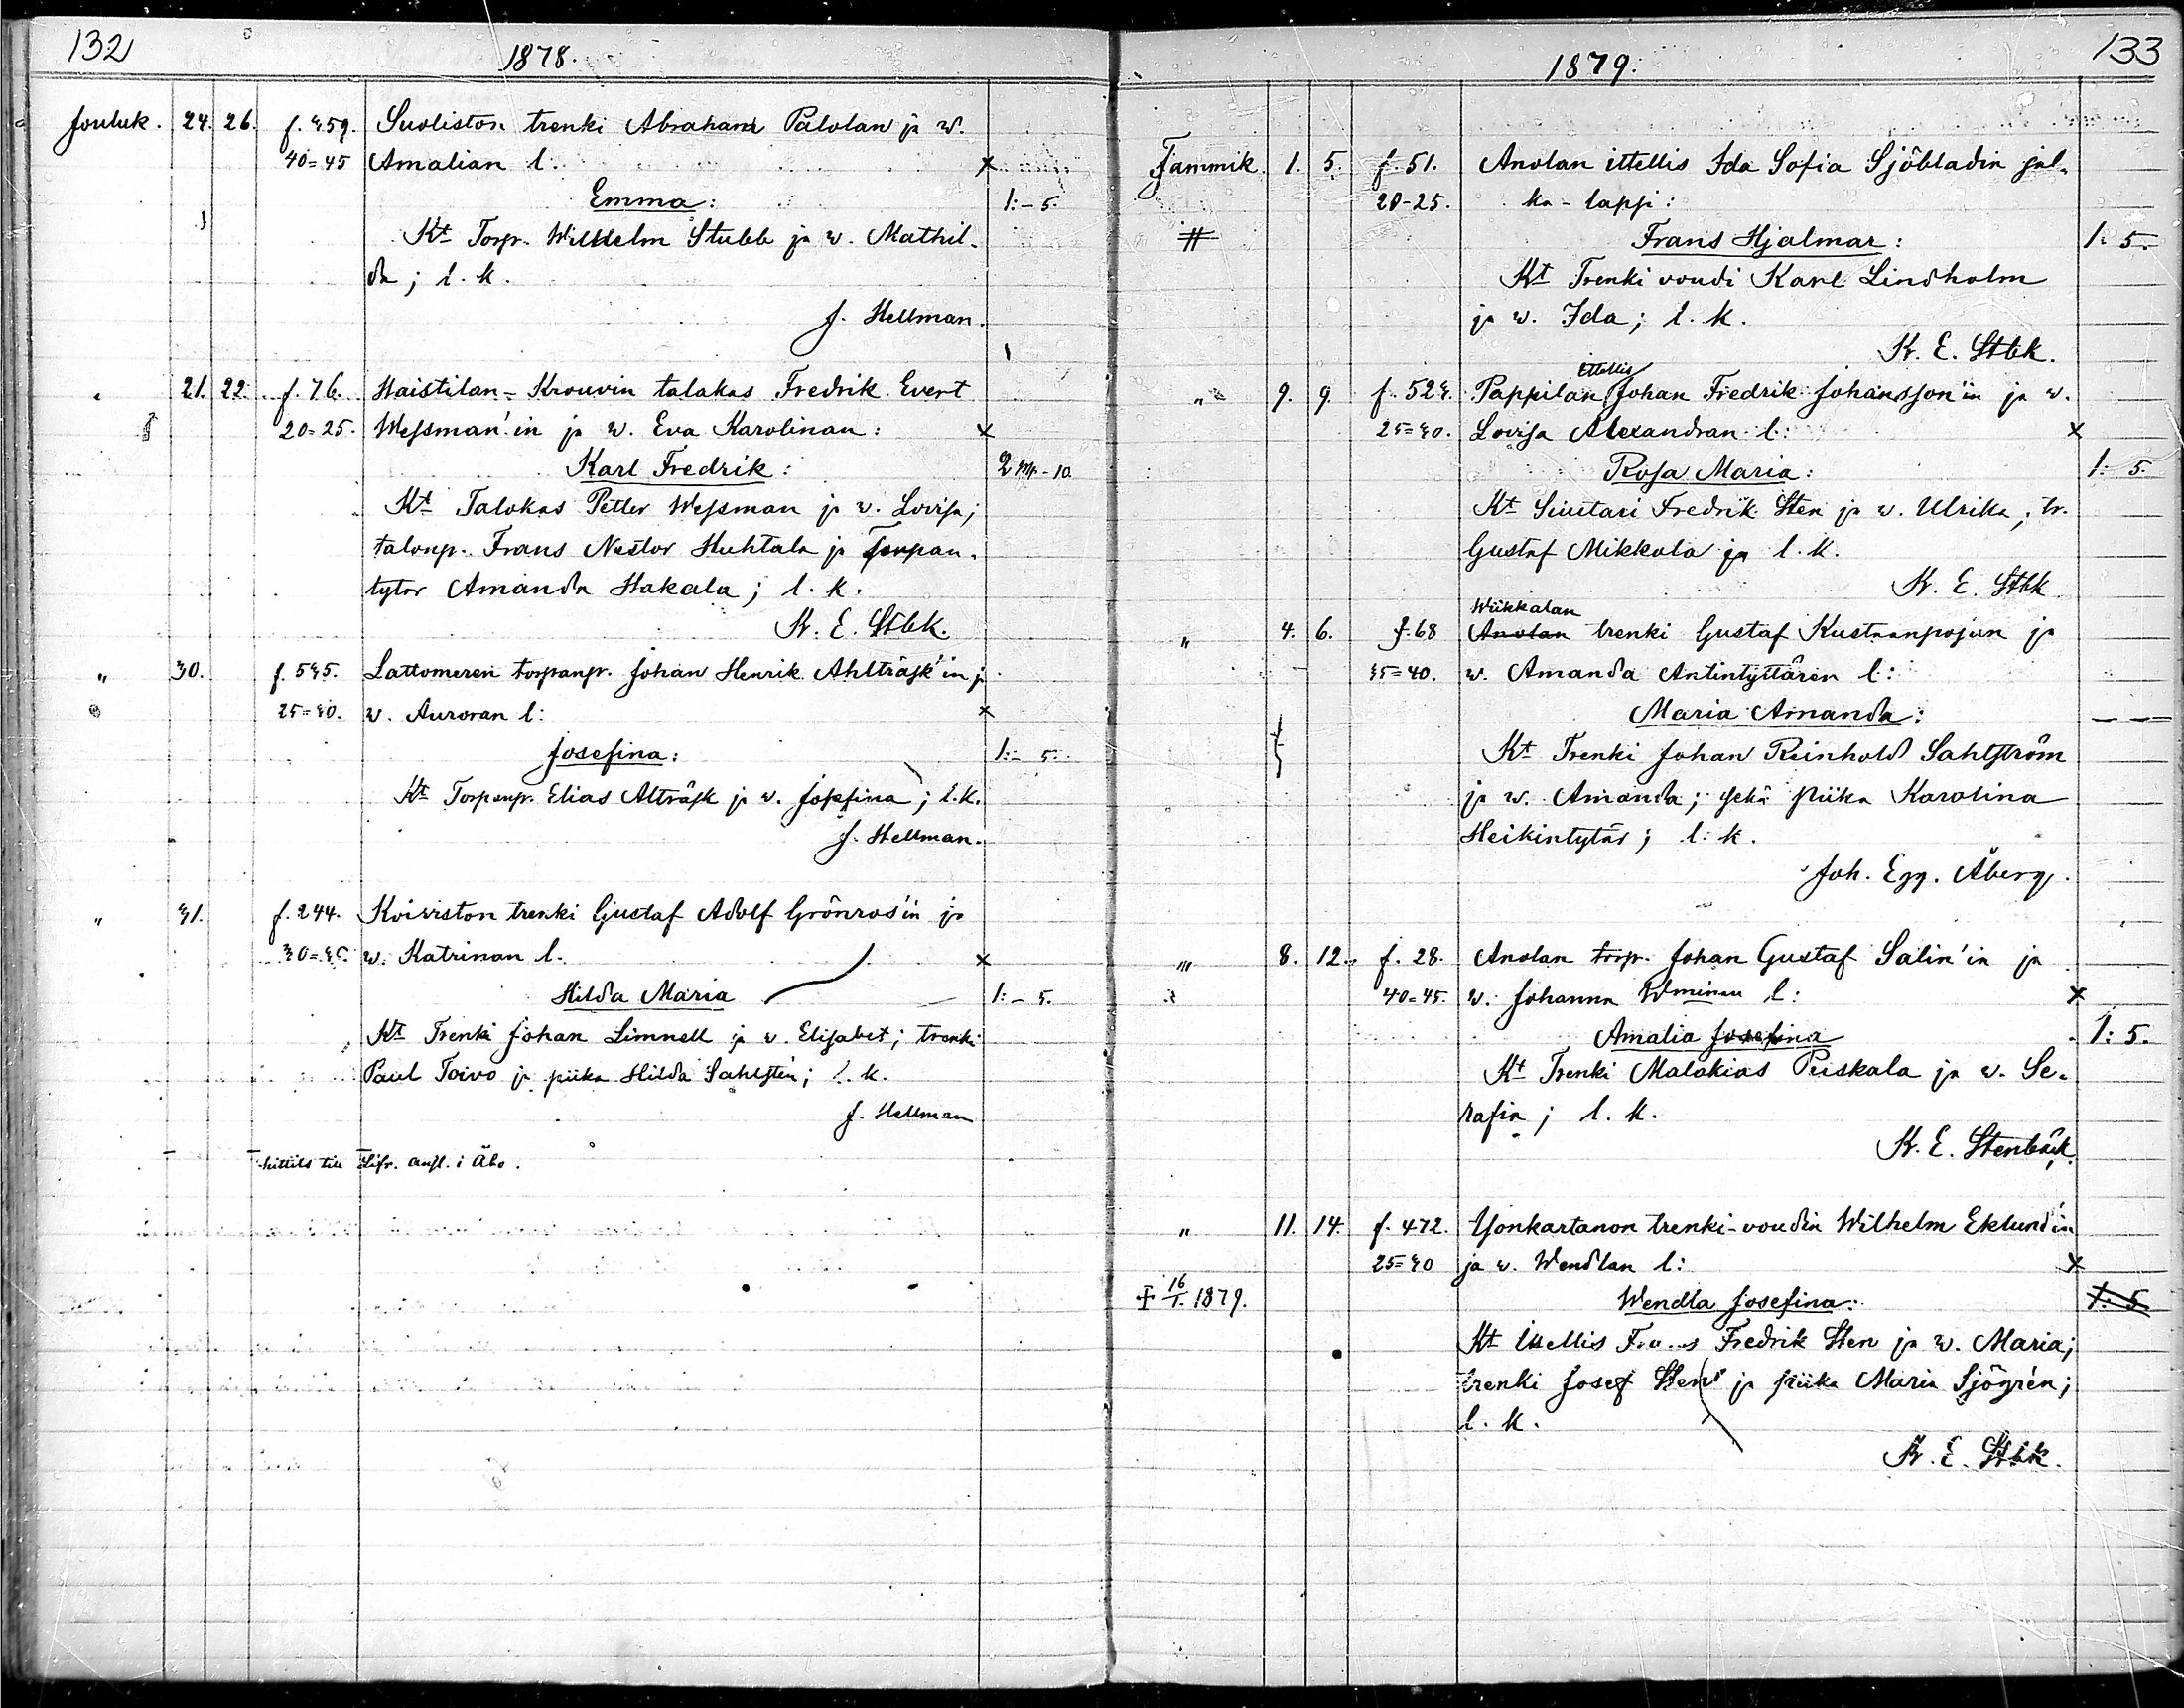 132
1878.
Jouluk. 24. 26. f. 359. Suoliston trenki Abraham Palolan ja w.
40=45 Amalian l. x
Emma: 1:-5.
Kt Torp. Wilhelm Stubb ja w. Mathil-
da; l. k.
J. Hellman.
" 21. 22. f. 76. Haistilan-Krouvin talokas Fredrik Evert
20=25. Wessman'in ja w. Eva Karolinan: x
Karl Fredrik: 2 Mk-10.
Kt Talokas Petter Wessman ja w. Lovisa;
talonp. Frans Nestor Huhtala ja Torpan-
tytor Amanda Hakala; l. k.
K. E. Stbk.
" 30. f. 535. Lattomeren torpanp. Johan Henrik Ahlträsk'in ja
25=30. w. Auroran l: x
Josefina: 1:-5.
Kt Torpanp. Elias Alträsk ja w. Josefina; l. k.
J. Hellman.
" 31. f. 244. Koiviston trenki Gustaf Adolf Grönros'in ja
30=35. w. Katrinan l. x
Hilda Maria 1:-5.
Kt Trenki Johan Limnell ja w. Elisabet; trenki
Paul Toivo ja piika Hilda Sahlstén; l. k.
J. Hellman
hittils till Lifr. anst. i Åbo.
133
1879.
Tammik. 1. 5. f. 51. Anolan ittellis Ida Sofia Sjöbladin jal-
20-25. ka-lapsi:
# Frans Hjalmar: 1: 5.
Kt Trenki voudi Karl Lindholm
ja w. Ida; l. k.
K. E. Stbk.
ittellis
" 9. 9. f. 523. Pappilan Johan Fredrik Johansson'in ja w.
25=30. Lovisa Alexandran l: x
Rosa Maria: 1: 5.
Kt Siuntari Fredrik Sten ja w. Ulrika; tr.
Gustaf Mikkola ja l. k.
K. E. Stbk
Wiikkalan
" 4. 6. f. 68 Anolan trenki Gustaf Kustaanpojan ja
35=40. w. Amanda Antintyttären l:
Maria Amanda: — — —
Kt Trenki Johan Reinhold Sahlström
ja w. Amanda; sekä piika Karolina
Heikintytär; l. k.
Joh. Egg. Åberg.
" 8. 12. f. 28. Anolan torp. Johan Gustaf Salin'in ja
40=45. w. Johanna Wminan l: x
Amalia Josefina 1: 5.
Kt Trenki Malakias Peiskala ja w. Se-
rafia; l. k.
K. E. Stenbäck.
" 11. 14. f. 472. Yonkartanon trenki-voudin Wilhelm Eklund'in
25=30 ja w. Wendlan l: x
‡ 16/1. 1879. Wendla Josefina: 1: 5.
Kt ittellis Frans Fredrik Sten ja w. Maria;
trenki Josef Sten ja piika Maria Sjögrén;
l. k.
K. E. Stbk.